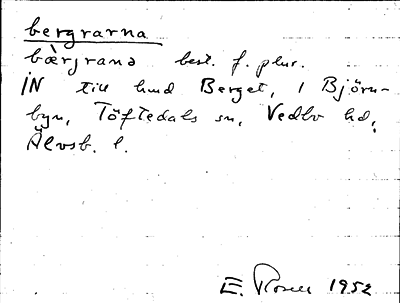 bergrarna
bærjrana best. f. plur.
IN till hmd Berget, i Björn-
byn, Töftedals sn, Vedbo hd,
Älvsb. l.
E. Rosell 1952